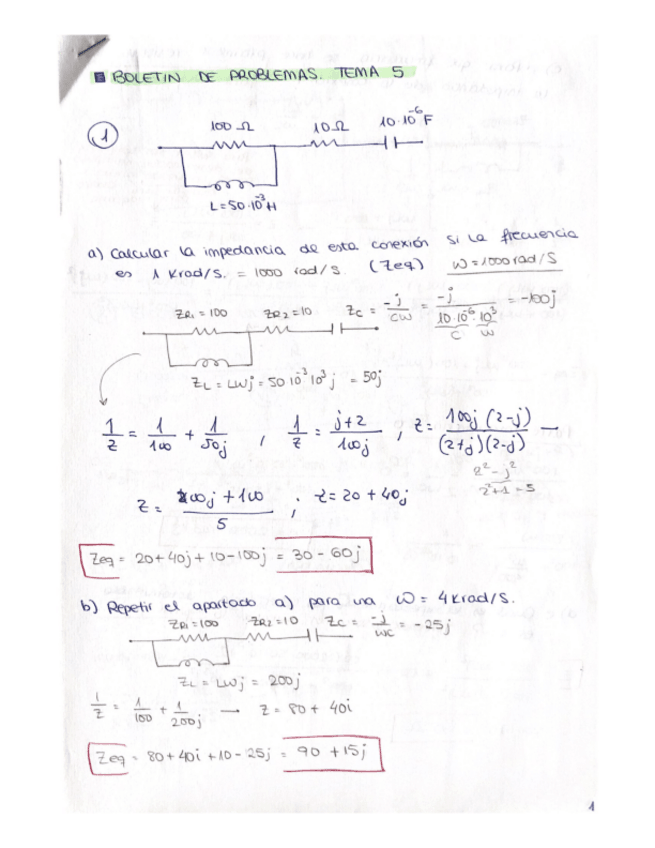 BOLETIN DE PROBLEMAS. TEMA 5
1
100 Ω 10 Ω 10·10⁻⁶ F
L = 50·10⁻³ H
a) Calcular la impedancia de esta conexión si la frecuencia
es 1 Krad/s. = 1000 rad/s. (Zeq) W = 1000 rad/s
ZR1 = 100 ZR2 = 10 Zc = -j/CW = -j/(10·10⁻⁶·10³) = -100j
C W
ZL = LWj = 50 10⁻³ 10³ j = 50j
1/Z = 1/100 + 1/50j , 1/Z = (j+2)/100j , Z = 100j (2-j)/((2+j)(2-j)) —
2² - j²
2²+1 = 5
Z = (200j + 100)/5 ; Z = 20 + 40j
Zeq = 20 + 40j + 10 - 100j = 30 - 60j
b) Repetir el apartado a) para una W = 4 Krad/s.
ZR1 = 100 ZR2 = 10 Zc = -j/WC = -25j
ZL = LWj = 200j
1/Z = 1/100 + 1/200j → Z = 80 + 40i
Zeq = 80 + 40i + 10 - 25j = 90 + 15j
1